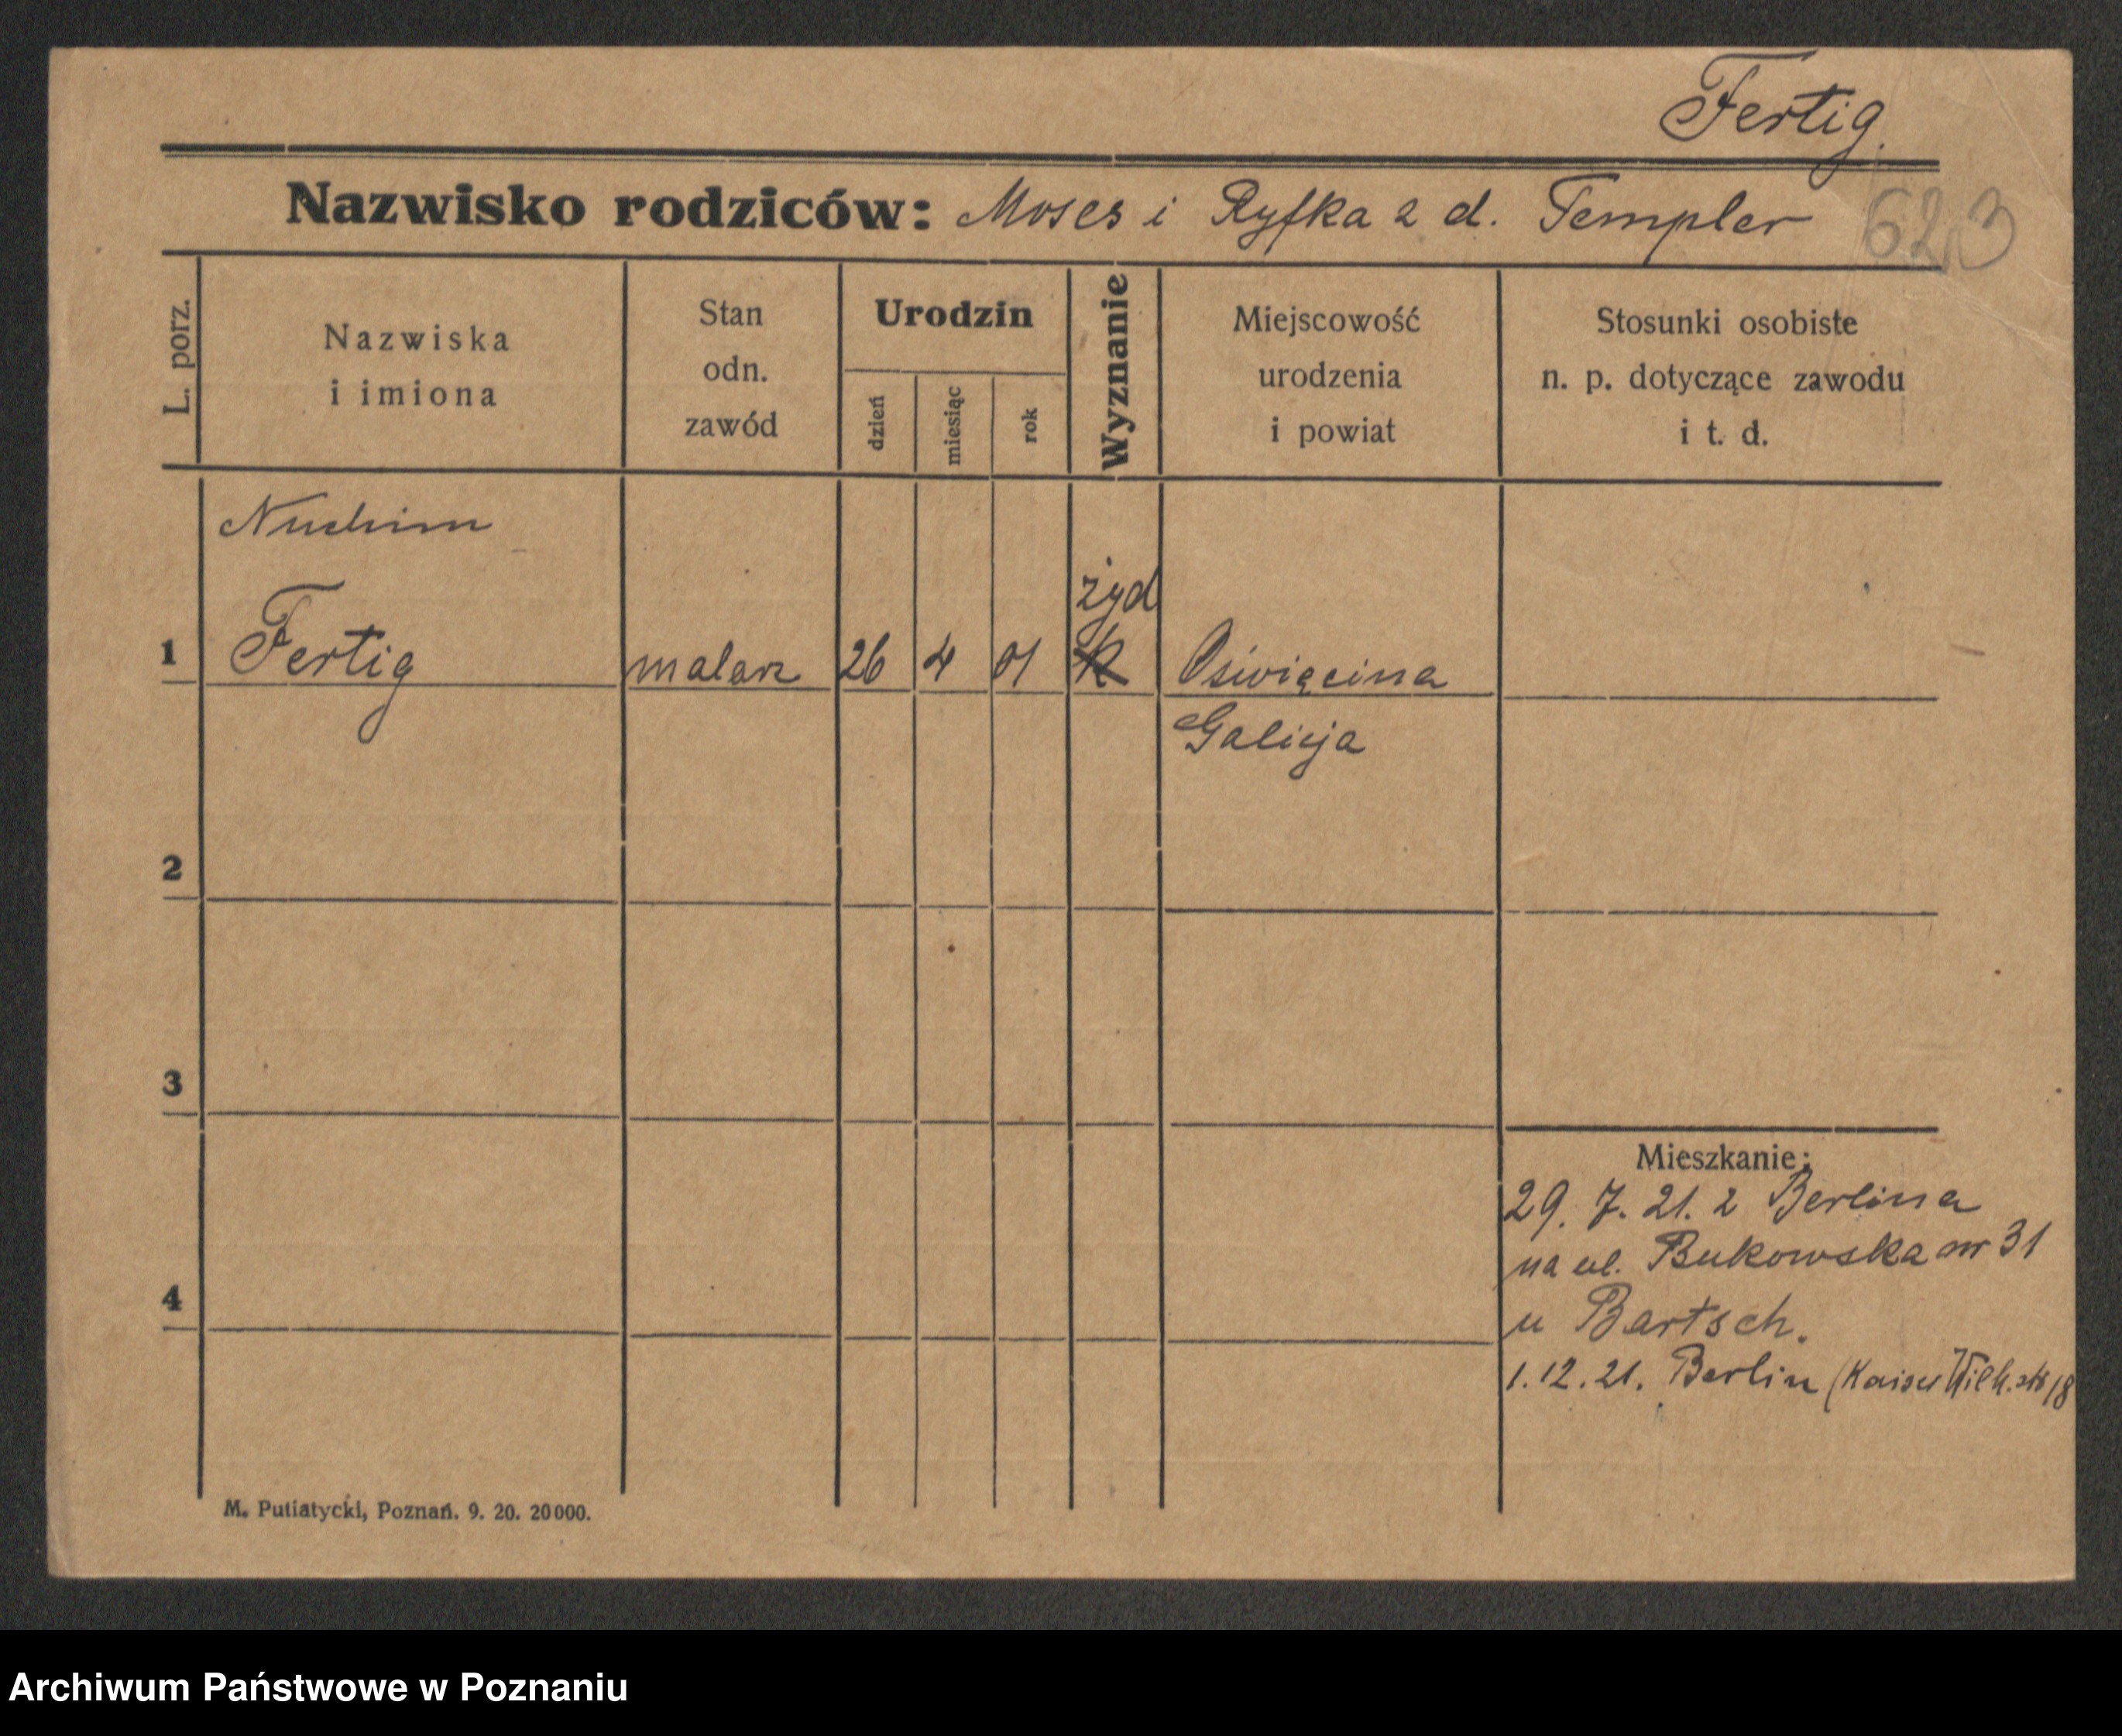 Fertig.
Nazwisko rodziców: Moses i Ryfka z d. Templer
623
L. porz.
Nazwiska
i imiona
Stan
odn.
zawód
Urodzin
dzień
miesiąc
rok
Wyznanie
Miejscowość
urodzenia
i powiat
Stosunki osobiste
n. p. dotyczące zawodu
i t. d.
Nuchim
żyd
1 Fertig malarz 26 4 01 k Oświęcina
Galicja
2
3
Mieszkanie:
29. 7. 21. z Berlina
na ul. Bukowska nr 31
4
u Bartsch.
1. 12. 21. Berlin (Kaiser Wilh. str 18
M. Putiatycki, Poznań. 9. 20. 20000.
Archiwum Państwowe w Poznaniu